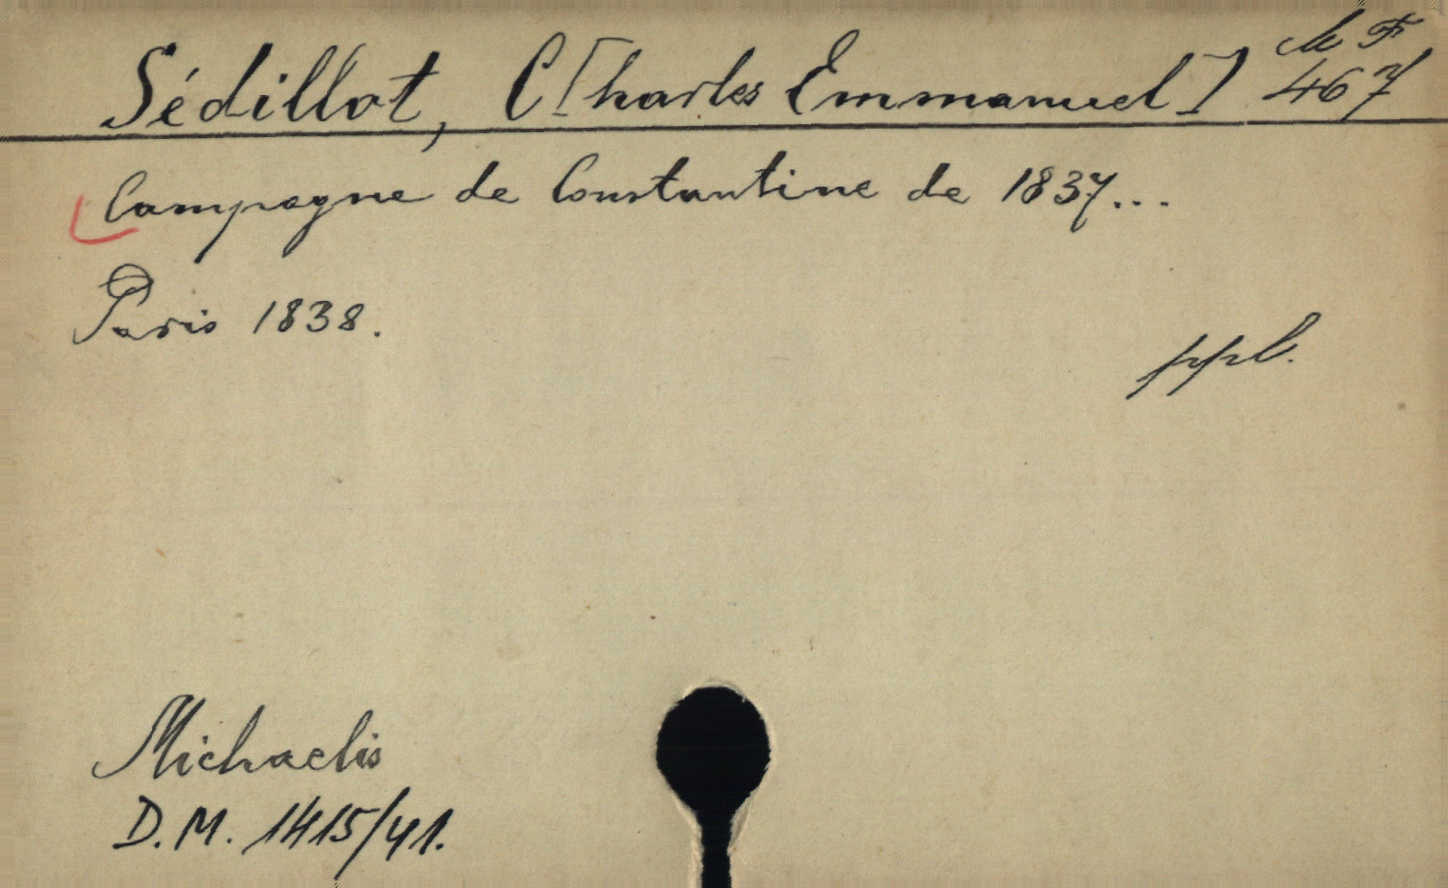 Sédillot, C[harles Emmanuel]
M F
467
Campagne de Constantine de 1837...
Paris 1838.
ppb.
Michaelis
D.M. 1415/41.